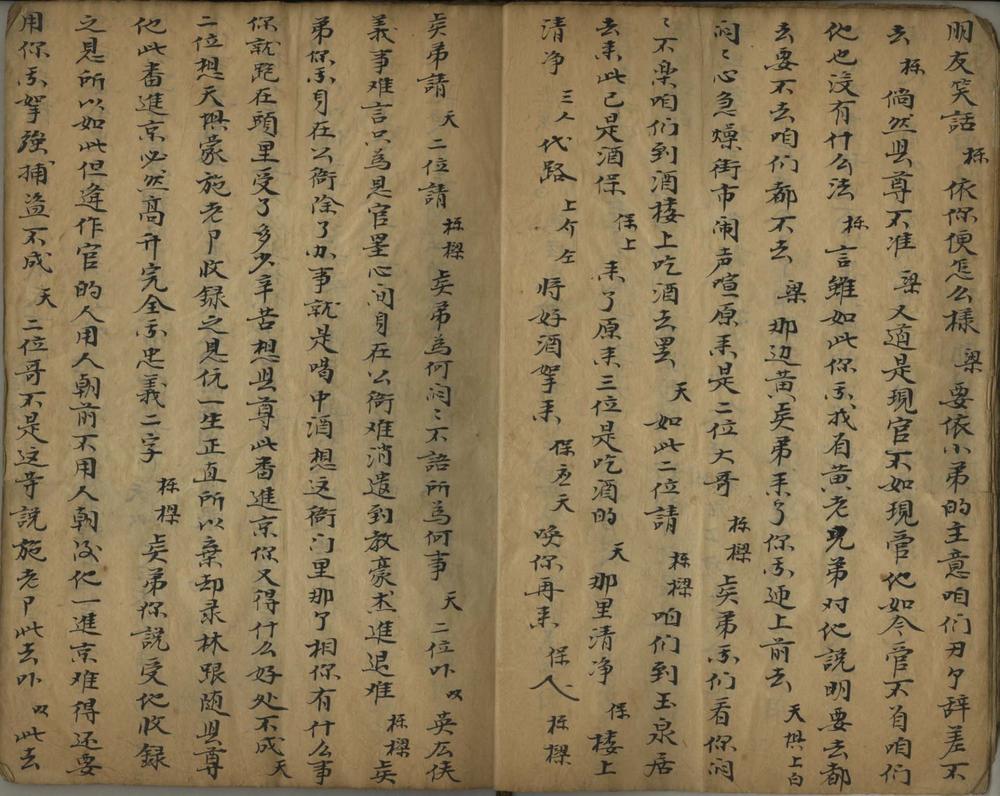 朋友笑話 栋 依你便怎么樣 梁 要依小弟的主意咱们 辞差不
去 栋 倘然县尊不准 梁 又道是現官不如現管他如今管不着咱们
他也没有什么法 栋 言雖如此你我有黄老兄弟对他說明要去都
去要不去咱们都不去 梁 那边黄贤弟来了你我迎上前去 天棋上白
闷闷心急燥街市闹声喧原来是二位大哥 栋樑 贤弟我们看你闷
〻不楽咱们到酒楼上吃酒去罢 天 如此二位請 栋樑 咱们到玉泉居
去来此已是酒保 保上 来了原来三位是吃酒的 天 那里清净 保 楼上
清净 三人 代路 上介左 将好酒拏来 保应天 唤你再来 保 人 栋樑
贤弟請 天 二位請 栋樑 贤弟為何闷〻不語所為何事 天 二位吓 英雄侠
義事难言只為見官墨心间身在公衙难消遣到教豪杰進退难 栋樑 贤
弟你我身在公衙除了办事就是喝中酒想这衙门里那个相你有什么事
你就跑在頭里受了多少辛苦想县尊此番進京你又得什么好处不成 天
二位想天棋蒙施老 收録之恩伉一生正直所以棄却录林跟随县尊
他此番進京必然高升完全我忠義二字 栋樑 贤弟你説受他收録
之恩所以如此但逢作官的人用人朝前不用人朝後他一進京难得还要
用你我拏強捕盗不成 天 二位哥不是这等説施老 此去吓 此去